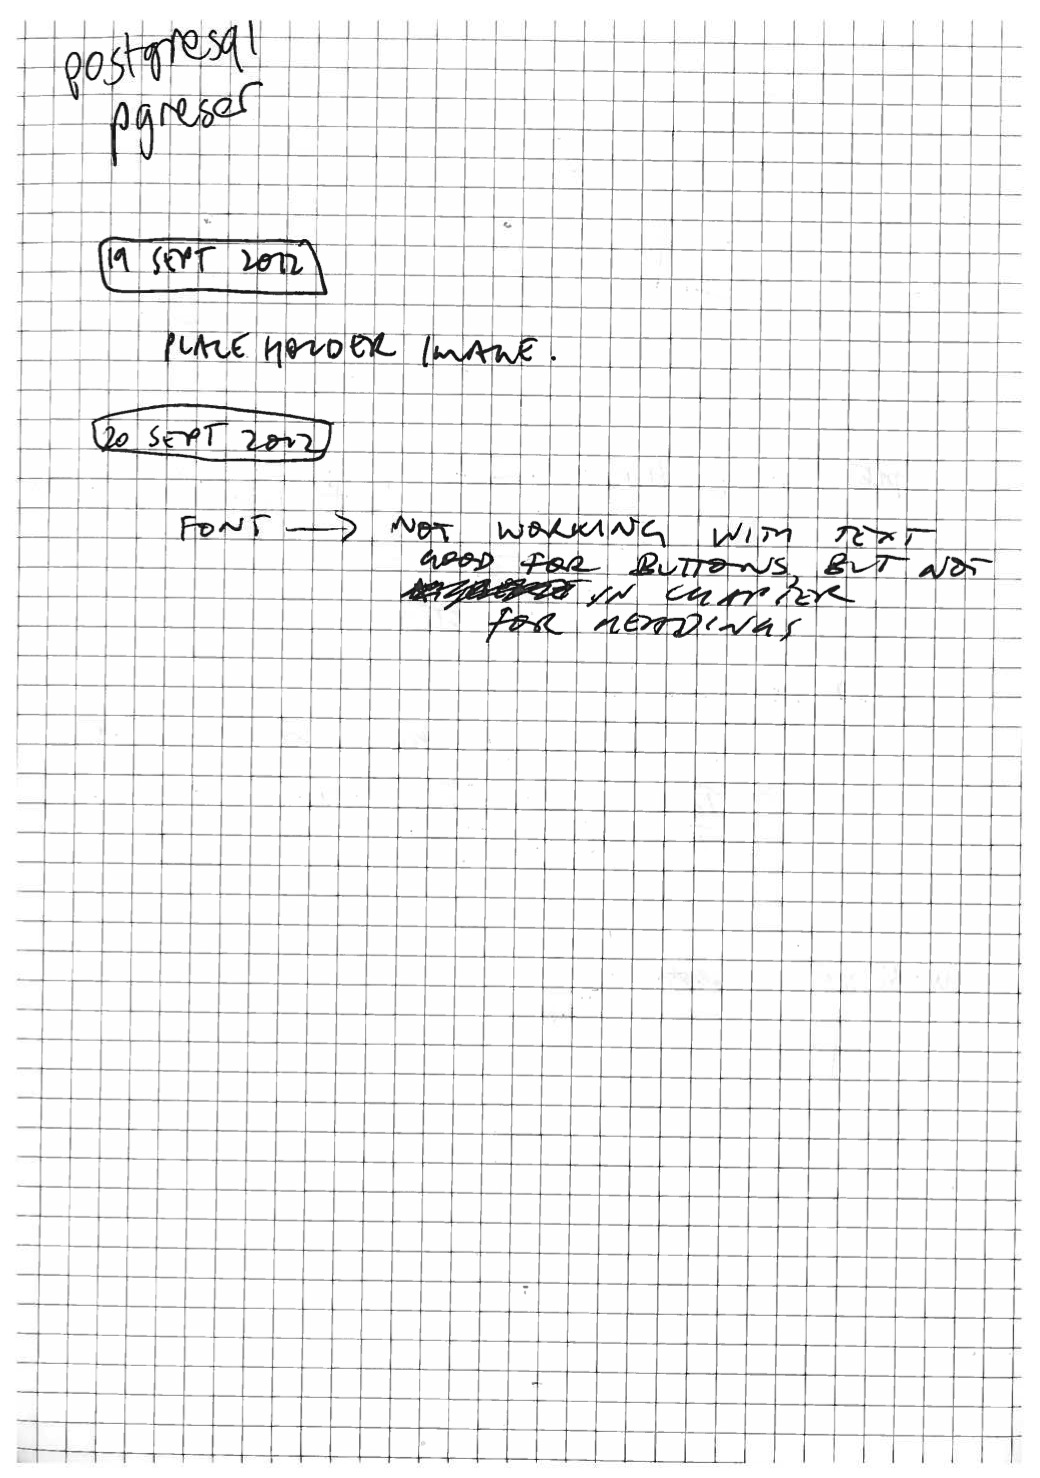 postgresql
pgreser
19 SEPT 2012
PLACE HOLDER IMAGE.
20 SEPT 2012
FONT → NOT WORKING WITH TEXT
GOOD FOR BUTTONS, BUT NOT
IN CHAPTER
FOR READINGS